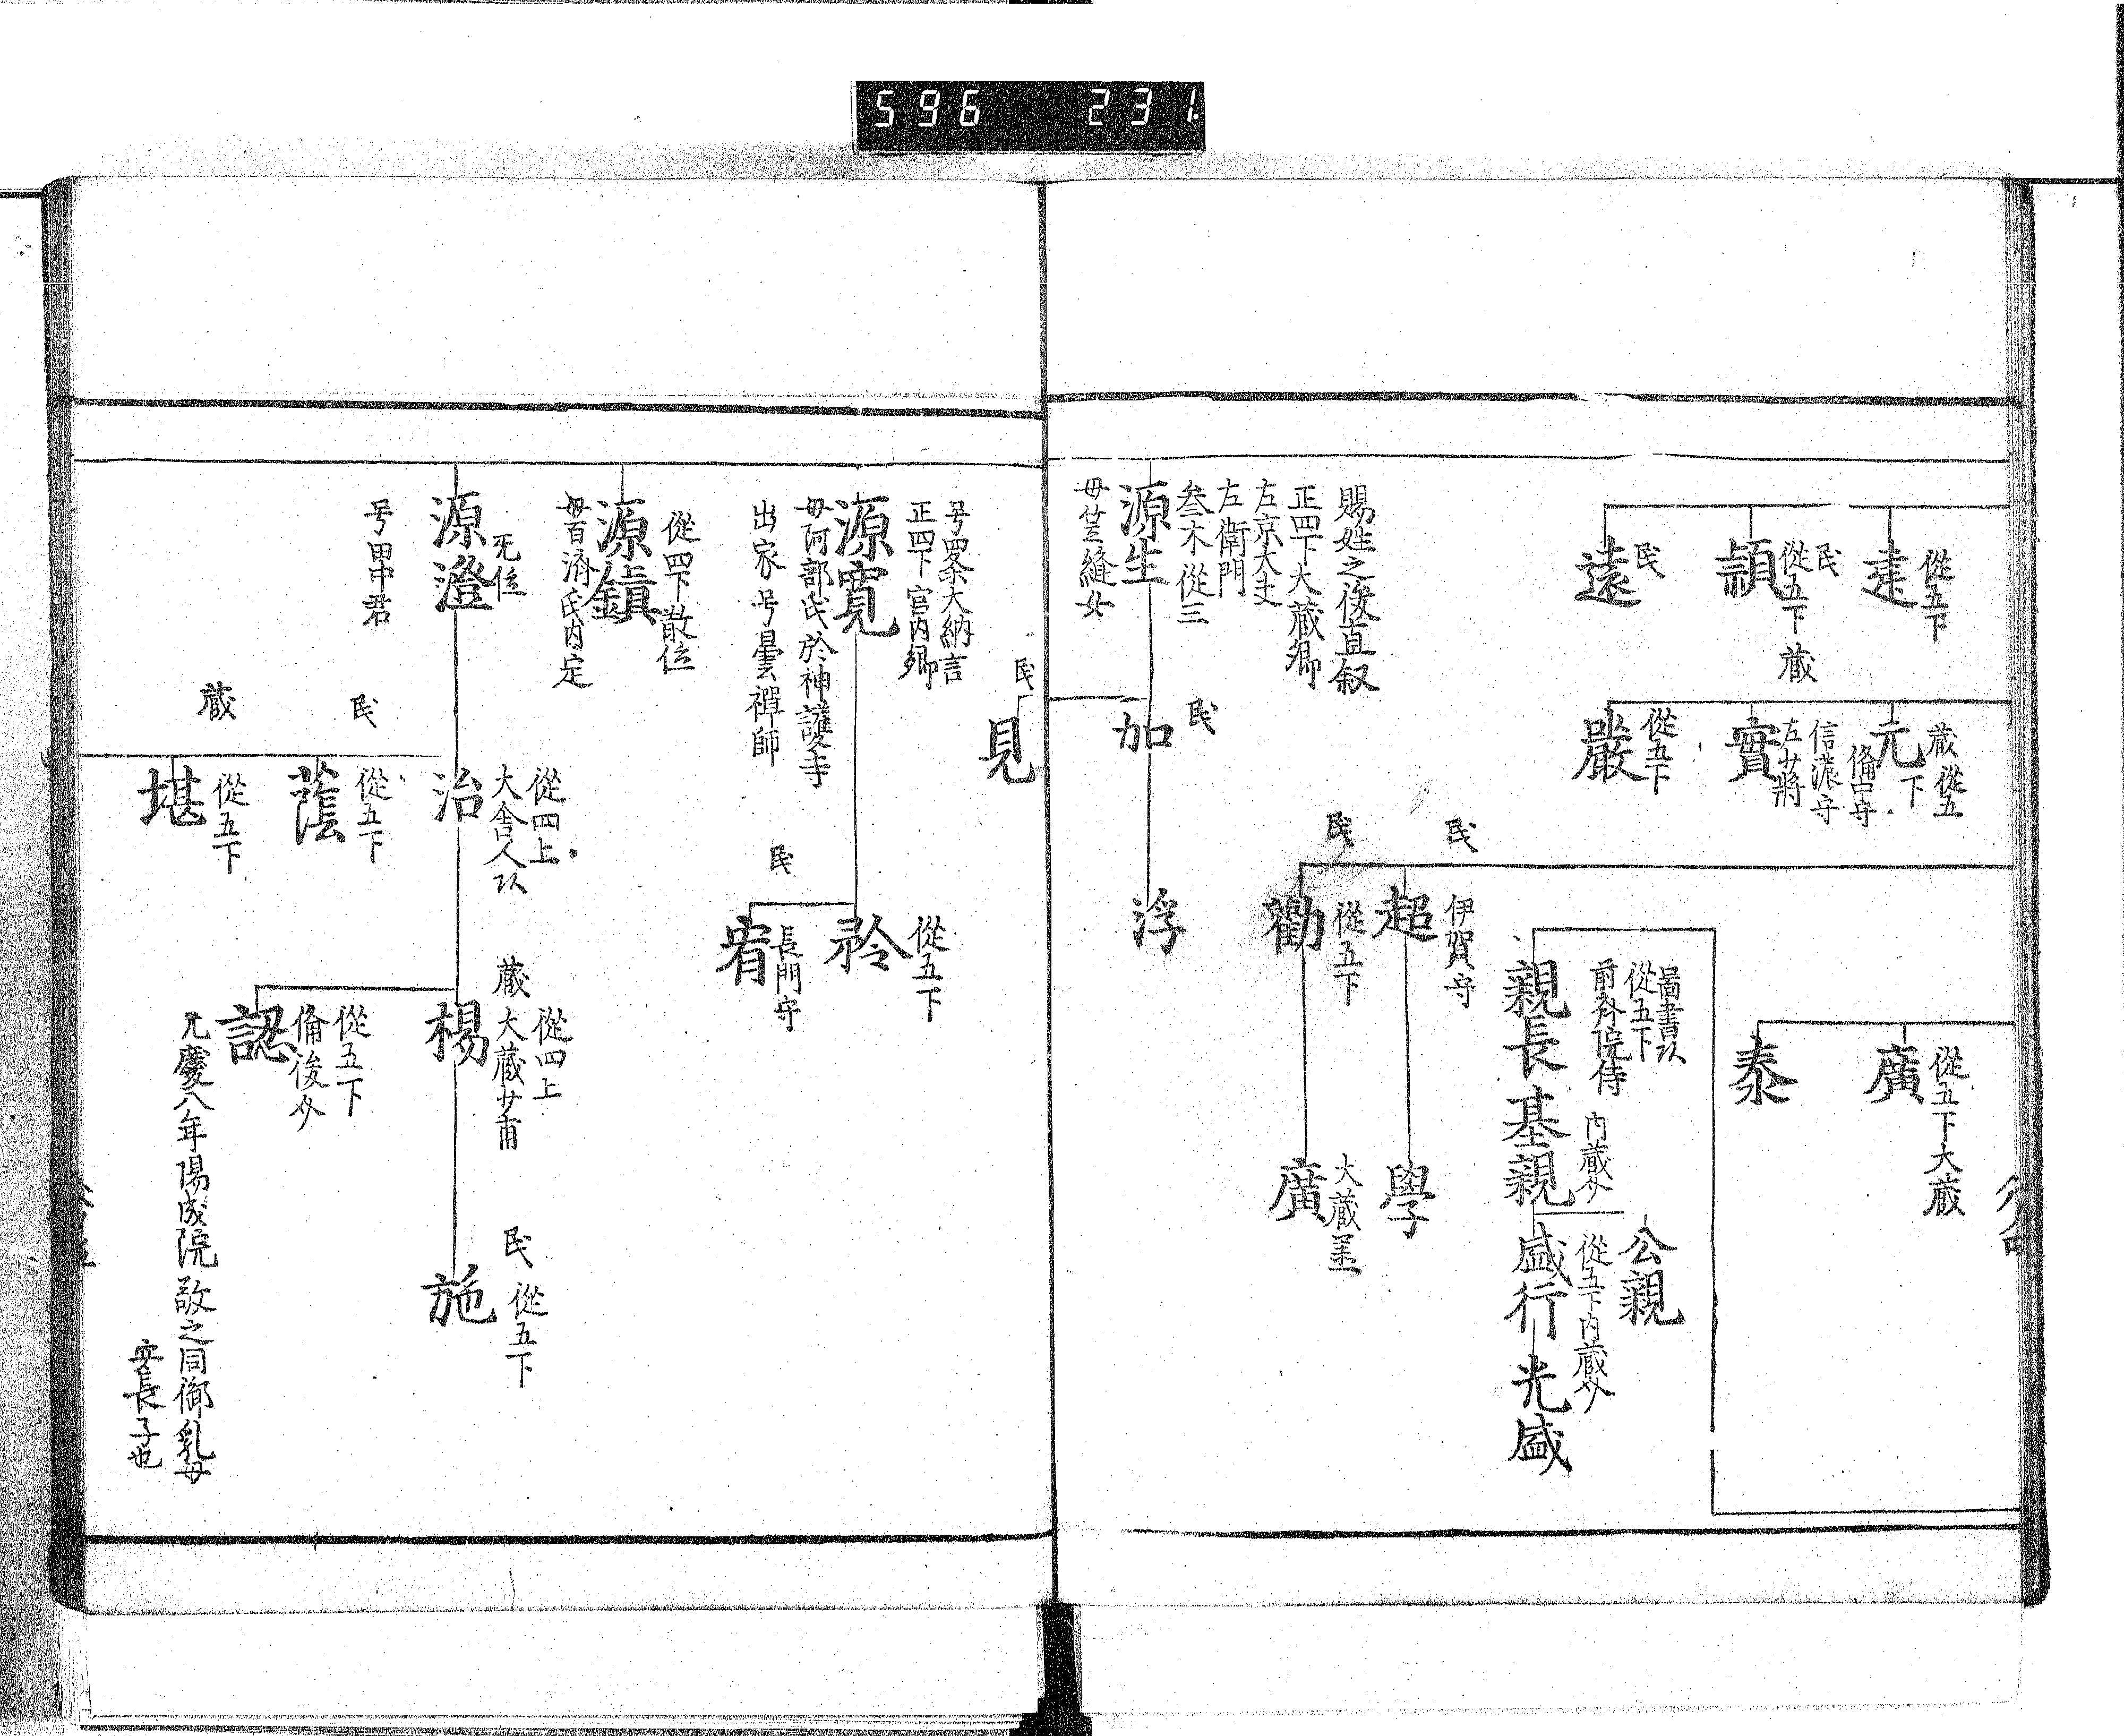 596 231
從五下
建
民
從五下
頴
民
遠
蔵 從五下
元
備中守
信濃守
左少將
實
蔵
從五下
嚴
從五下大蔵
廣
泰
圖書頭
從五下
前斎院侍
親長
基親
内蔵
公親
從五下内蔵
盛行
光盛
民
伊賀守
超
學
民
從五下
勸
大蔵丞
廣
賜姓之後直叙
正四下大蔵卿
左京大夫
左衛門
叁木從三
源生
母笠縫女
民
加
浮
民
見
号四条大納言
正四下宮内卿
源寛
母阿部氏於神護寺
出家号曇禅師
從五下
矜
民
長門守
宥
從四下散位
源鎮
母百濟氏内定
无位
源澄
号田中君
從四上
大舎人頭
治
民
從五下
蔭
蔵
從五下
堪
蔵
從四上
大蔵少甫
楊
從五下
備後
認
元慶八年陽成院敌之同御乳母
安長子也
民
從五下
施